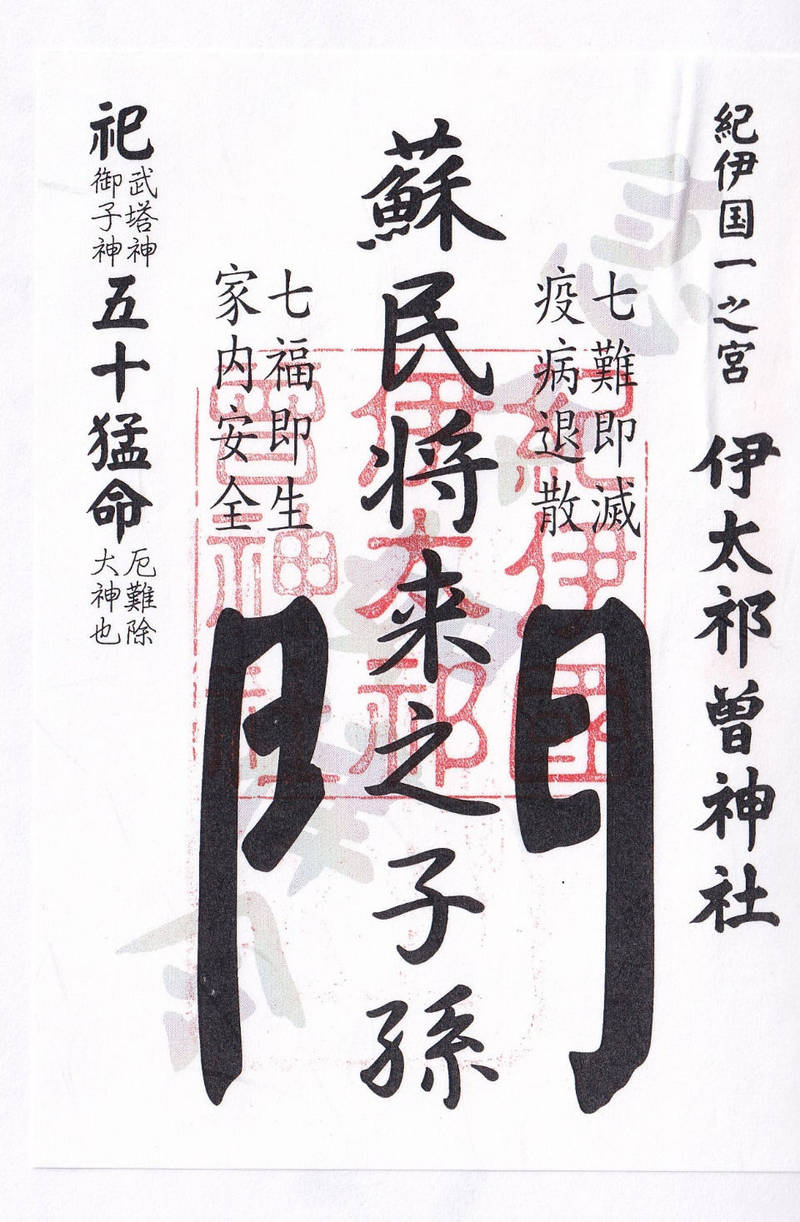 紀伊国一之宮 伊太祁曽神社
七難即滅
疫病退散
蘇民将来之子孫
門
七福即生
家内安全
祀 武塔神
御子神
五十猛命
厄難除
大神也
紀伊國
伊太祁
曽神社